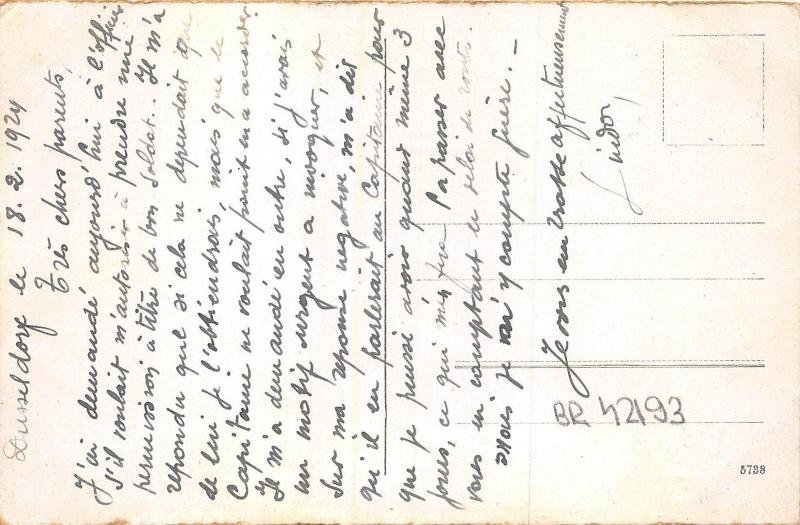 Dusseldorf le 18.2.1924
Très chers parents,
J'ai demandé aujourd'hui à l'officier
s'il voulait m'autoriser à prendre une
permission à titre de bon soldat. Il m'a
repondu que si cela ne dependait que
de lui je l'obtiendrais, mais que le
Capitaine ne voulait point en accorder
Il m'a demandé en outre, si j'avais
un motif urgent a invoquer, et
sur ma reponse negative, m'a dit
qu'il en parlerait au Capitaine pour
que je puisse avoir quand même 3
jours, ce qui m'en fera 2 a passer avec
vous en comptant le delai de route.
Mais je n'y compte guère. -
Je vous embrasse affectueusement
BR 42193
5738